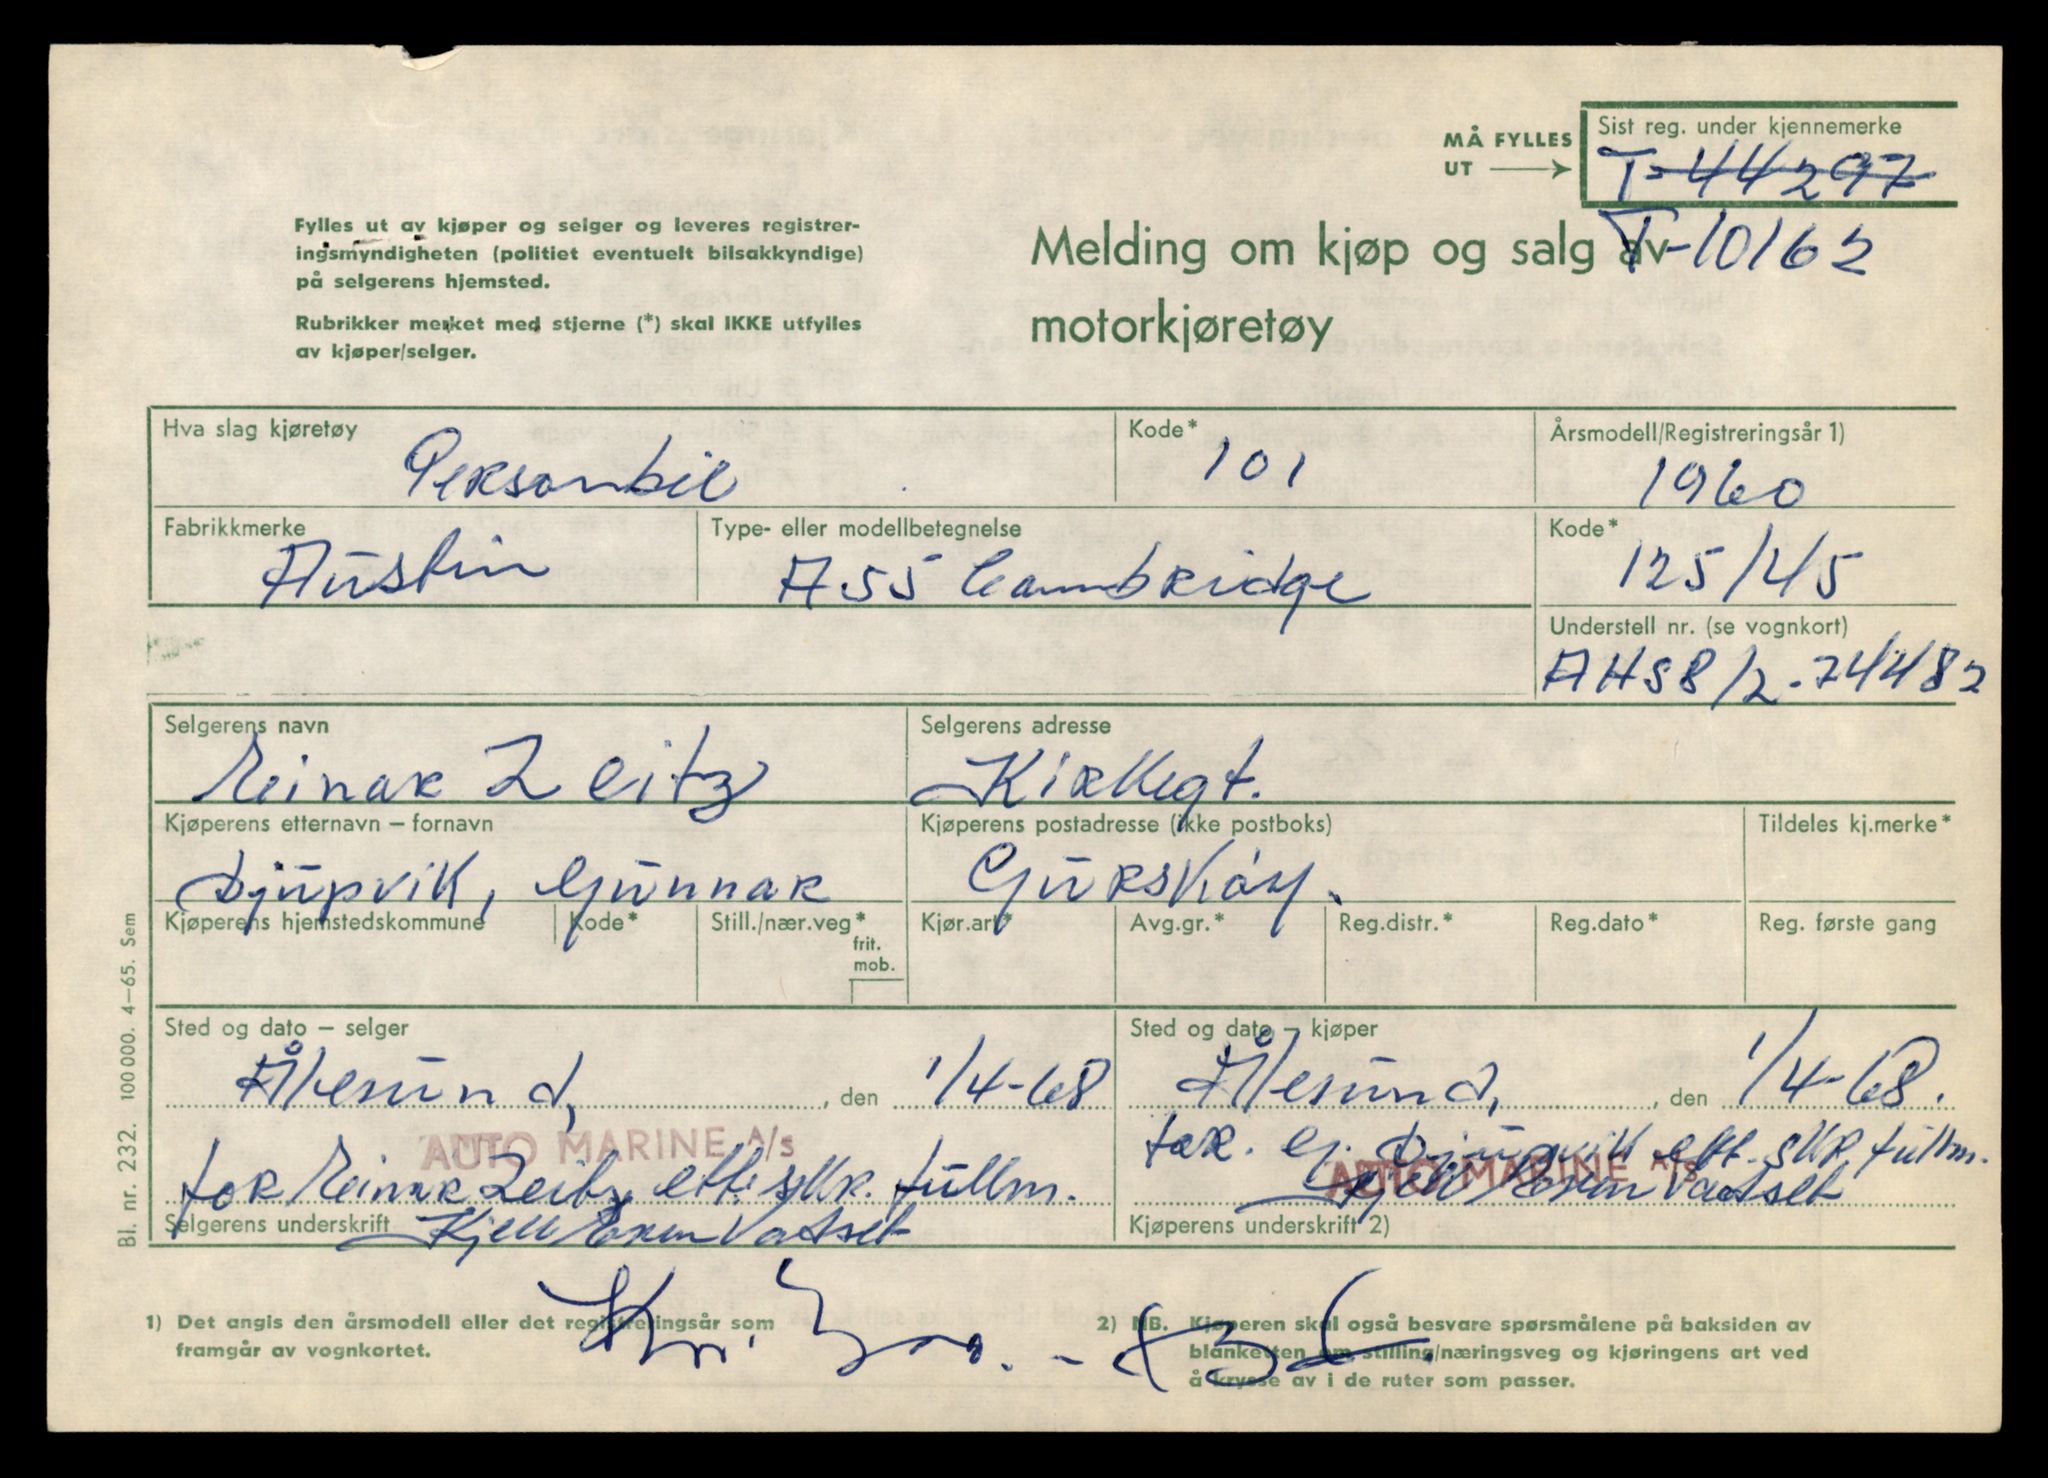 MÅ FYLLES
UT
Sist reg. under kjennemerke
T-44297
T-10162
Fylles ut av kjøper og selger og leveres registrer-
ingsmyndigheten (politiet eventuelt bilsakkyndige)
på selgerens hjemsted.
Rubrikker merket med stjerne (*) skal IKKE utfylles
av kjøper/selger.
Melding om kjøp og salg av
motorkjøretøy
Hva slag kjøretøy
Personbil
Kode*
101
Årsmodell/Registreringsår 1)
1960
Fabrikkmerke
Austin
Type- eller modellbetegnelse
A55 Cambridge
Kode*
125/45
Understell nr. (se vognkort)
AHS8/2-74482
Selgerens navn
Einar Zeitz
Selgerens adresse
Kirkegt.
Kjøperens etternavn – fornavn
Djupvik, Gunnar
Kjøperens postadresse (ikke postboks)
Gurskøy.
Tildeles kj.merke*
Kjøperens hjemstedskommune
Kode*
Still./nær.veg*
frit.
mob.
Kjør.art*
Avg.gr.*
Reg.distr.*
Reg.dato*
Reg. første gang
Sted og dato – selger
Ålesund, den 1/4-68
AUTO MARINE A/S
for Einar Zeitz ett. skr. fullm.
Selgerens underskrift
Kjell Vadset
Sted og dato – kjøper
Ålesund, den 1/4-68.
for. G. Djupvik ett. skr. fullm.
AUTO MARINE A/S
Kjell Vadset
Kjøperens underskrift 2)
Kr.
1) Det angis den årsmodell eller det registreringsår som
framgår av vognkortet.
2) NB. Kjøperen skal også besvare spørsmålene på baksiden av
blanketten om stilling/næringsveg og kjøringens art ved
å krysse av i de ruter som passer.
Bl. nr. 232. 100 000. 4–65. Sem